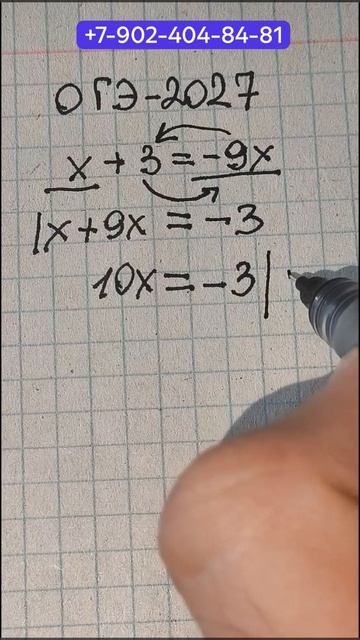 +7-902-404-84-81
ОГЭ-2027
x + 3 = -9x
1x + 9x = -3
10x = -3 |